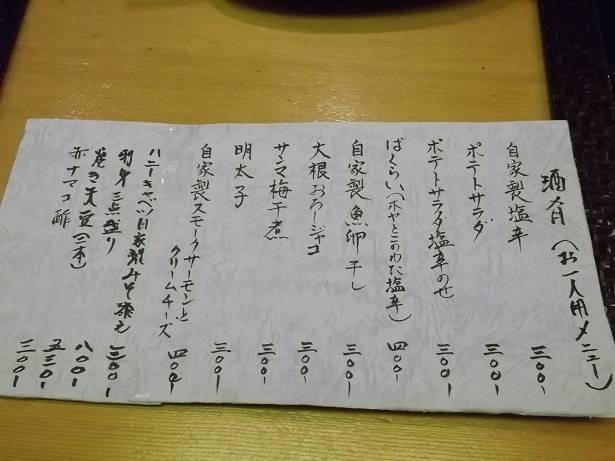 酒肴(お一人用メニュー)
自家製塩辛 三〇〇ー
ポテトサラダ 三〇〇ー
ポテトサラダ塩辛のせ 三〇〇ー
ばくらい(ホヤとこのわた塩辛) 四〇〇ー
自家製魚卵干し 三〇〇ー
大根おろしジャコ 三〇〇ー
サンマ梅干煮 三〇〇ー
明太子 三〇〇ー
自家製スモークサーモンと
クリームチーズ 四〇〇ー
ハニーキャベツ自家製みそ添え 三〇〇ー
刺身三点盛り 八〇〇ー
焼き天豆(三本) 五三〇ー
赤ナマコ酢 三〇〇ー